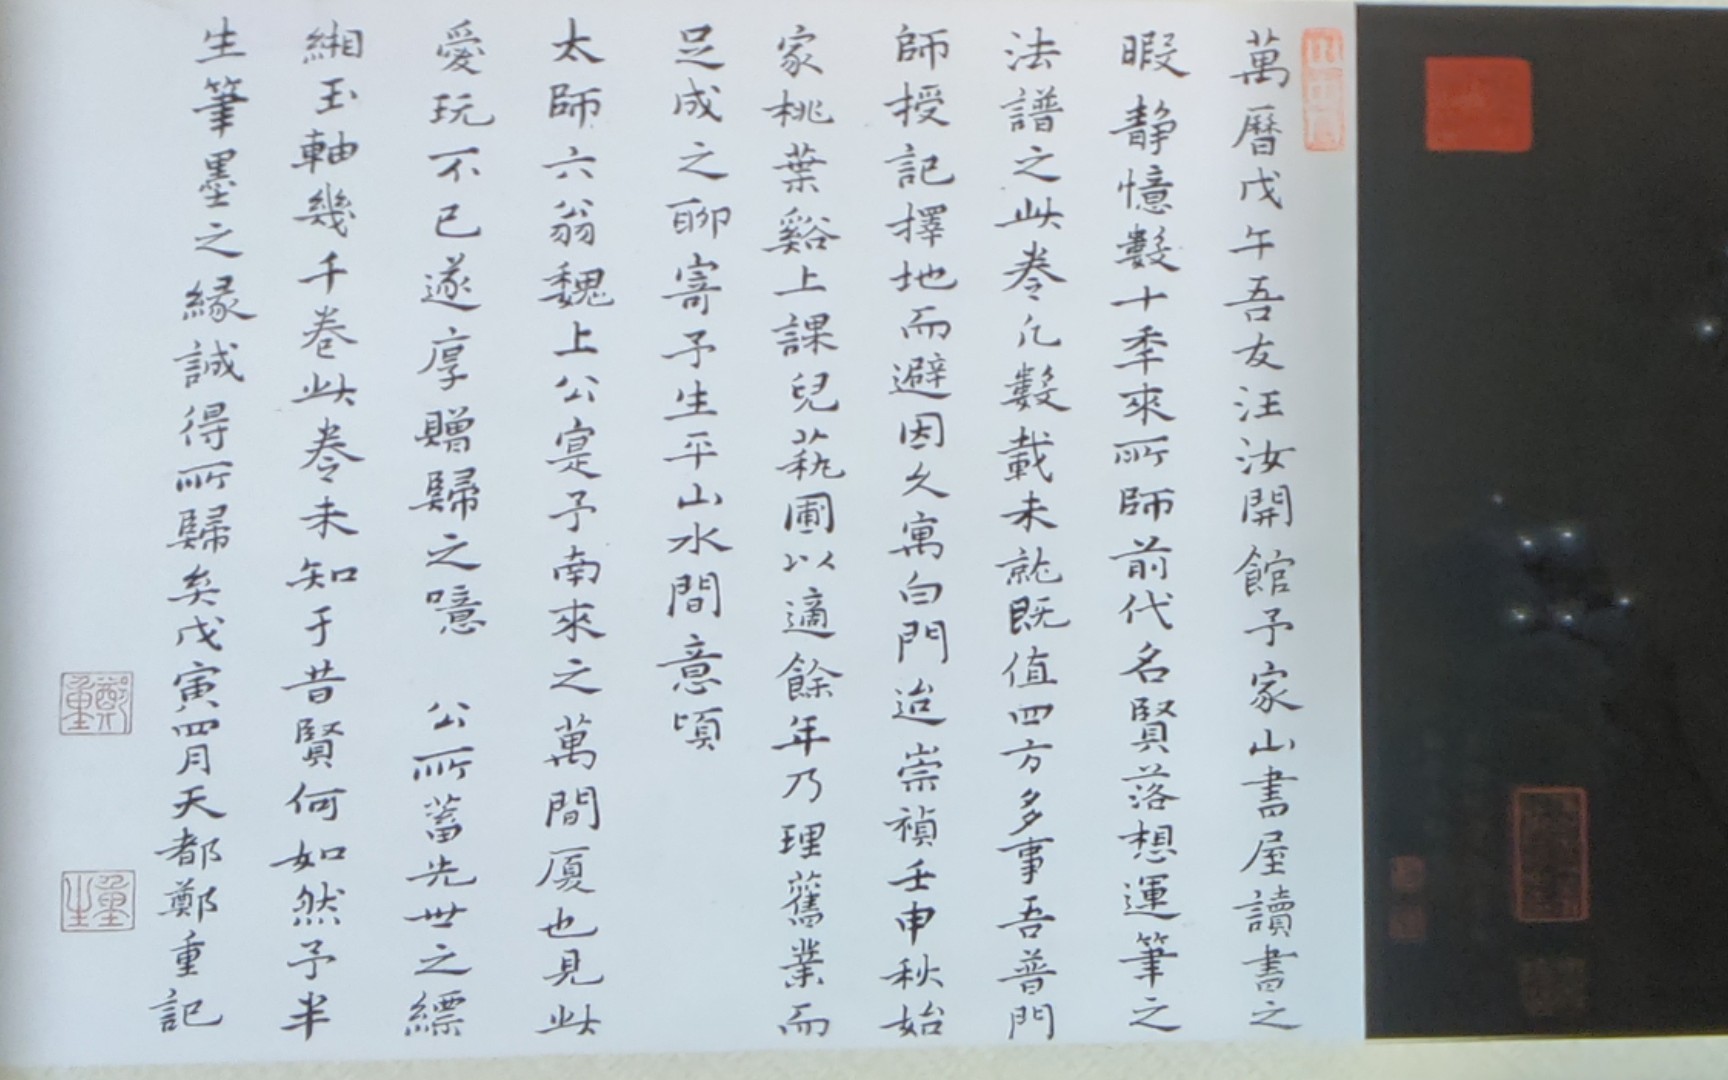 萬曆戊午吾友汪汝開館予家山書屋讀書之
暇靜憶數十年來所師前代名賢落想運筆之
法譜之此卷凡數載未就既值四方多事吾普門
師授記擇地而避因久寓白門迨崇禎壬申秋始
家桃葉谿上課兒蓺圃以適餘年乃理舊業而
足成之聊寄予生平山水間意頃
太師六翁魏上公寔予南來之萬間廈也見此
愛玩不已遂厚贈歸之噫 公所蓄先世之縹
緗玉軸幾千卷此卷未知于昔賢何如然予半
生筆墨之緣誠得所歸矣戊寅四月天都鄭重記
鄭重
重生